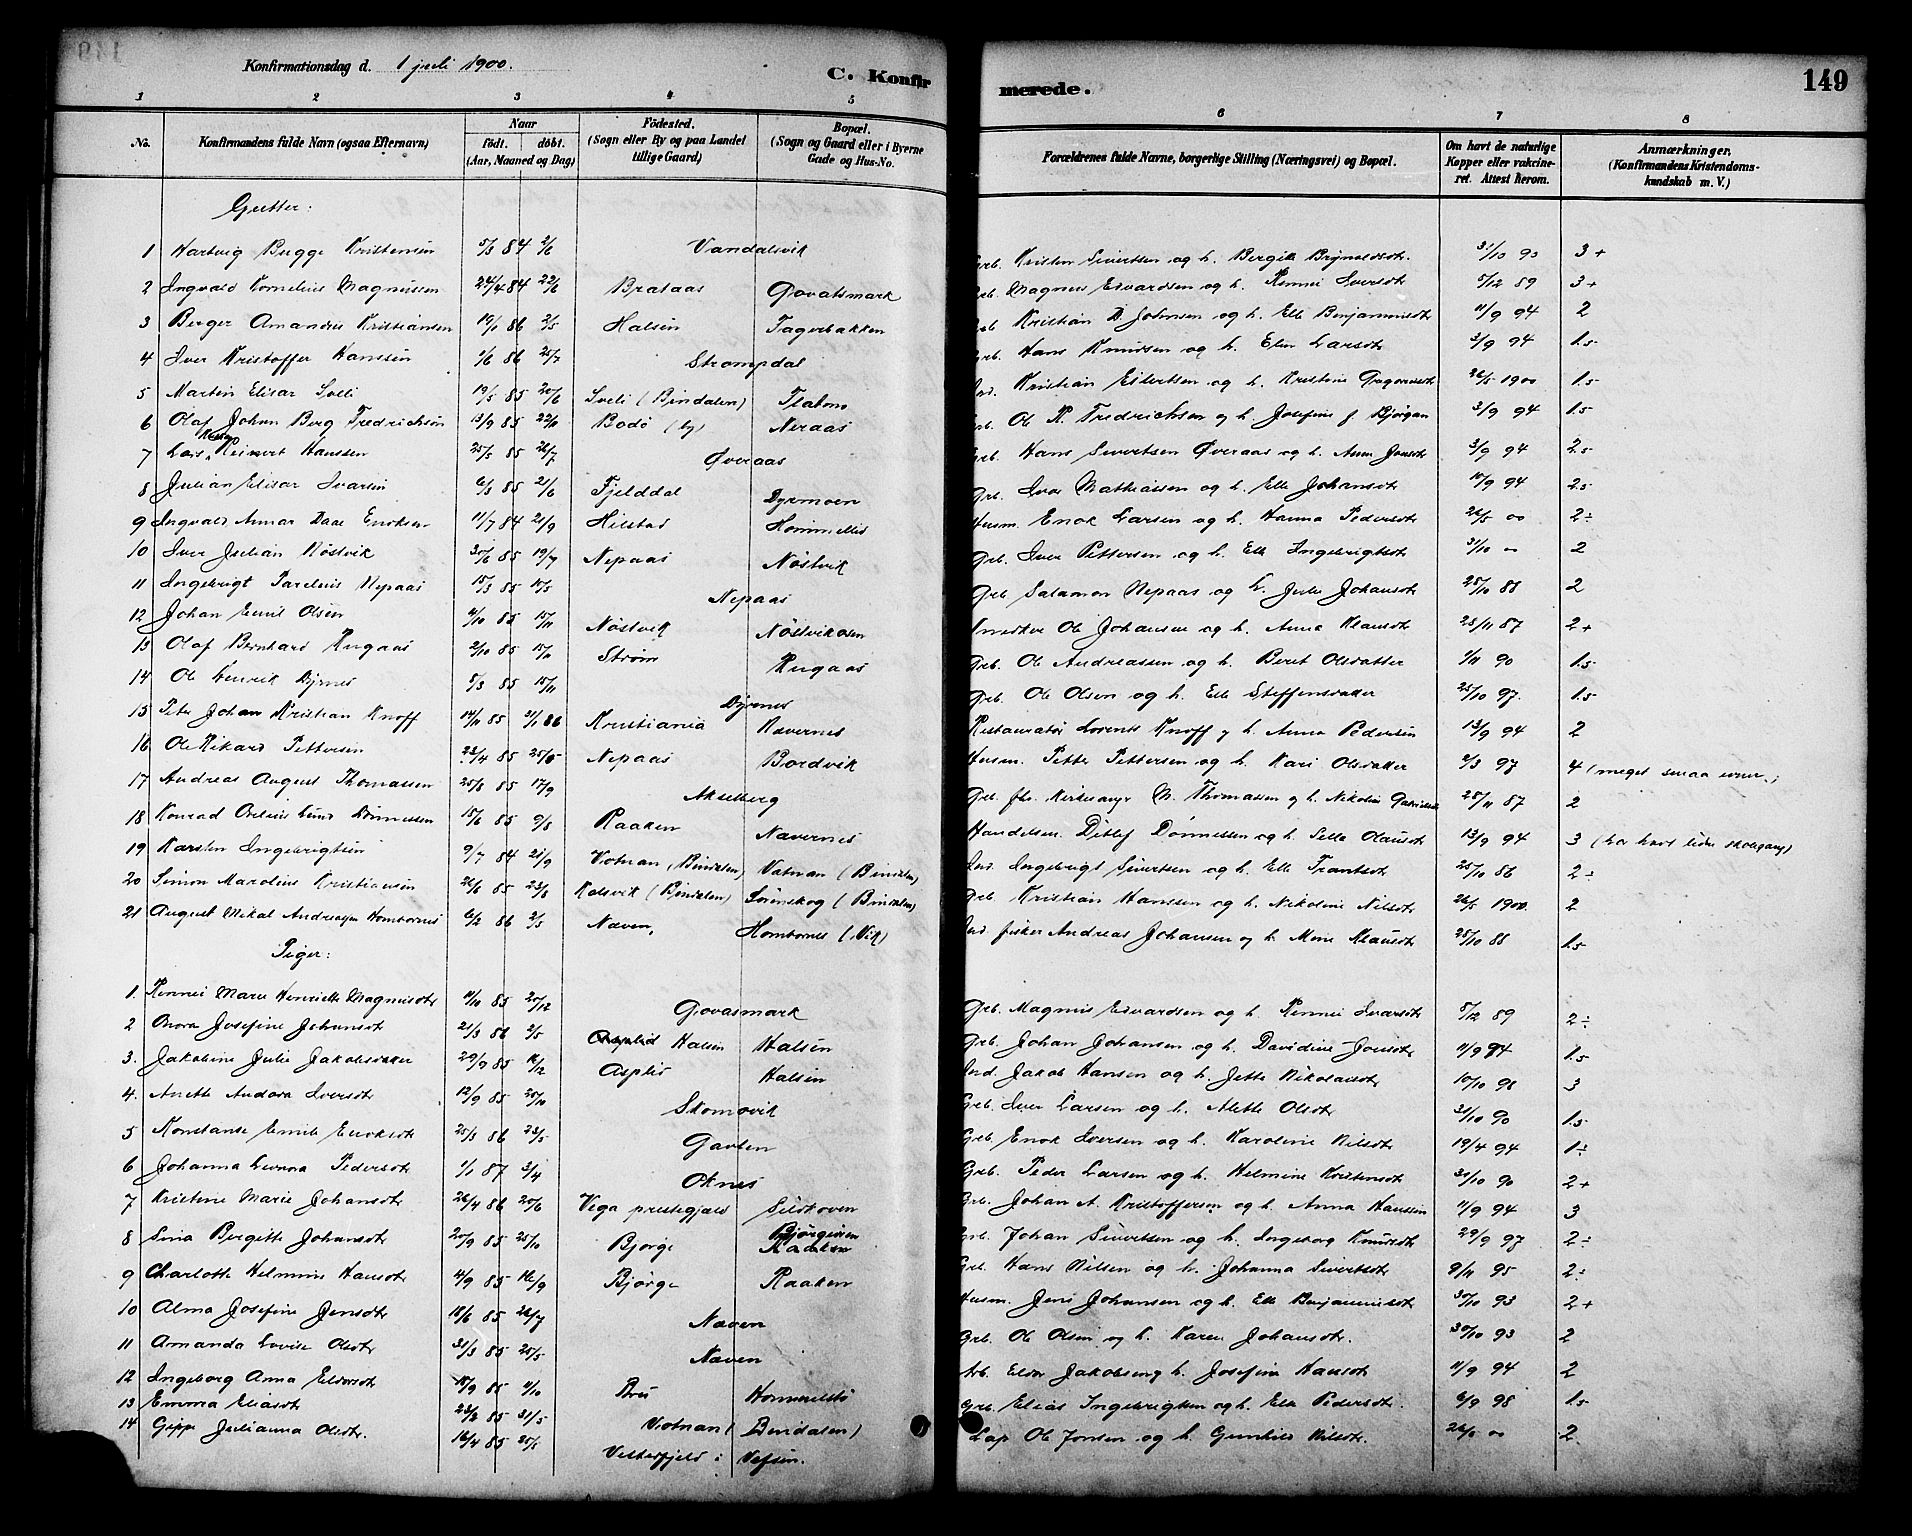 Konfirmationsdag d. 1 juli 1900.
C. Konfir
merede.
149
1 2 3 4 5 6 7 8
No.
Konfirmandens fulde Navn (ogsaa Efternavn)
Naar födt. döbt. (Aar, Maaned og Dag)
Födested. (Sogn eller By og paa Landet tillige Gaard)
Bopæl. (Sogn og Gaard eller i Byerne Gade og Hus-No.
Forældrenes fulde Navne, borgerlige Stilling (Næringsvei) og Bopæl.
Om havt de naturlige Kopper eller vakcineret. Attest herom.
Anmærkninger, (Konfirmandens Kristendomskundskab m. V.)
Gutter:
1 Hartvig Bugge Kristensen 5/3 84 2/6 Vandalsvik Grb. Kristen Sivertsen og h. Bergite Brynildsdtr. 31/10 90 3+
2 Ingvald Kornelius Magnussen 24/4 84 22/6 Brataas Govatsmark Grb. Magnus Edvardsen og h. Rennei Iversdtr 5/12 89 3+
3 Berger Amandus Kristiansen 19/1 86 2/5 Halsen Fagerbakken Grb. Kristian D. Johnsen og h. Elle Benjaminsdtr 11/9 94 2
4 Iver Kristoffer Hanssen 1/6 86 25/7 Strompdal Grb. Hans Knudsen og h. Elen Larsdtr 3/9 94 1.5
5 Martin Elisar Sveli 19/5 85 20/6 Sveli (Bindalen) Flatmo Ind. Kristian Eilertsen og h. Kristine Gregoriusdtr 26/5 1900 1.5
6 Olaf Johan Berg Fredrichsen 13/9 85 22/11 Bodø (by) Neraas Grb. Ole P. Fredrichsen og h. Josefine f. Bjørgan 3/9 94 1.5
7 Lars Reinert Hanssen 25/5 85 26/7 Øveraas Grb. Hans Sivertsen Øveraas og h. Anne Jonsdtr 3/9 94 2.5
8 Julian Elisar Ivarsen 6/3 85 21/6 Fjelddal Dyrmoen Grb. Ivar Mathiassen og h. Elle Johansdtr 10/9 94 2.5
9 Ingvald Annar Daae Enoksen 11/7 84 21/9 Hilstad Hommelstø Husm. Enok Larsen og h. Hanna Pedersdtr 26/5 00 2÷
10 Iver Julian Nøstvik 30/6 85 19/7 Nepaas Nøstvik Grb. Iver Pettersen og h. Elle Ingebrigtsdtr 31/10 00 2
11 Ingebrigt Parelius Nepaas 15/3 85 15/5 Nepaas Grb Salamon Nepaas og h. Julie Johansdtr 25/10 88 2
12 Johan Emil Olsen 4/10 85 15/11 Nøstvik Nøstvikosen Snedker Ole Johansen og h. Anna Klausdtr 23/11 87 2+
13 Olaf Bernhard Rugaas 2/10 85 15/11 Strøm Rugaas Grb. Ole Andreassen og h. Beret Olsdatter 1/11 90 1.5
14 Ole Henrik Dyrnes 5/3 85 15/11 Dyrnes Grb. Ole Olsen og h. Elle Steffensdatter 25/10 97. 1.5
15 Peter Johan Kristian Knoff 14/11 85 21/1 86 Kristiania Nævernes Restauratør Lorents Knoff og h. Anna Pedersen 13/9 94 2
16 Ole Rikard Pettersen 23/4 85 25/5 Nepaas Bordvik Husm. Petter Pettersen og h. Kari Olsdatter 4/3 97 4 (meget smaa evner.)
17 Andreas August Thomassen 25/8 85 17/9 Akselberg Grb. fhv. Kirkesanger N. Thomassen og h. Nikoline Gabrielsdtr 28/11 87 2
18 Konrad Orelius Lund Dønnessen 15/6 85 9/8 Raaken Nævernes Handelsm. Ditlef Dønnessen og h. Sella Olausdtr 13/9 94 3 (har havt liden skolegang)
19 Karsten Ingebrigtsen 9/7 84 21/9 Votnan (Bindalen) Vatnan (Bindalen) Ind. Ingebrigt Sivertsen og h. Elle Frantsdtr 25/10 86 2÷
20 Simon Marolius Kristiansen 26/6 85 23/8 Kalsvik (Bindalen) Sørenskog (Bindalen) Grb. Kristian Hanssen og h. Nikoline Nilsdtr 26/5 1900 2
21 August Mikal Andreassen Hombornes 6/2 86 2/5 Næven, Hombornes (Vik) Ind fisker Andreas Johansen og h. Mine Klausdtr 25/10 88 1.5
Piger:
1. Rennei Marie Henriette Magnusdtr 11/10 85 20/12 Govasmark Grb. Magnus Edvardsen og h. Rennei Ivarsdtr 5/12 89 2÷
2 Nora Josefine Johansdtr 21/3 86 2/5 Halsen Halsen Grb. Johan Johansen og h. Davidine Jonsdtr 11/9 94 1.5
3. Jakobine Julie Jakobsdatter 29/9 85 12/12 Asplid Halsen Ind. Jakob Hansen og h. Jette Nikolausdtr 10/10 98 3
4. Anette Andora Iversdtr 12/9 85 25/10 Skomovik Grb. Iver Larsen og h. Alette Olsdtr 31/10 90 1.5
5 Konstanse Emilie Enoksdtr 25/3 86 23/5 Gavlen Grb. Enok Iversen og h. Karoline Nilsdtr 19/4 94 1÷
6 Johanna Leonora Pedersdtr 1/1 87 3/4 Oknes Grb. Peder Larsen og h. Helmine Kristensdtr 31/10 90 2+
7 Kristine Marie Johansdtr 26/4 86 20/6 Vega prestegjæld Sildhoven Grb. Johan A. Kristoffersen og h. Anna Hanssen 11/9 94 3
8 Sina Bergitte Johansdtr 20/9 85 25/10 Bjørge Bjørgeviken Raaken Grb. Johan Sivertsen og h. Ingeborg Knudsdtr 29/9 97 2÷
9 Charlotte Helmine Hansdtr 4/9 85 16/9 Bjørge Raaken Grb. Hans Nilsen og h. Johanna Sivertsdtr 9/11 95 2÷
10 Alma Josefine Jensdtr 18/6 85 26/7 Næven Husm. Jens Johansen og h. Elle Benjaminsdtr 30/10 93 2+
11 Amanda Lovise Olsdtr 31/3 85 25/5 Næven Grb. Ole Olsen og h. Karen Johansdtr. 30/10 93 2
12 Ingeborg Anna Eldorsdtr 15/9 85 4/10 Bru Hommelstø Arb. Eldor Jakobsen og h. Josefine Hansdtr 11/9 94 2
13 Emma Eliasdtr 23/3 85 31/5 Votnan (Bindalen) Grb. Elias Ingebrigtsen og h. Elle Pedersdtr. 6/9 98 1.5
14 Gippe Julianna Olsdtr. 16/4 85 25/5 Vesterfjeld i Vefsen. Lap Ole Jonsen og h. Gunhild Nilsdtr. 26/5 00 2.